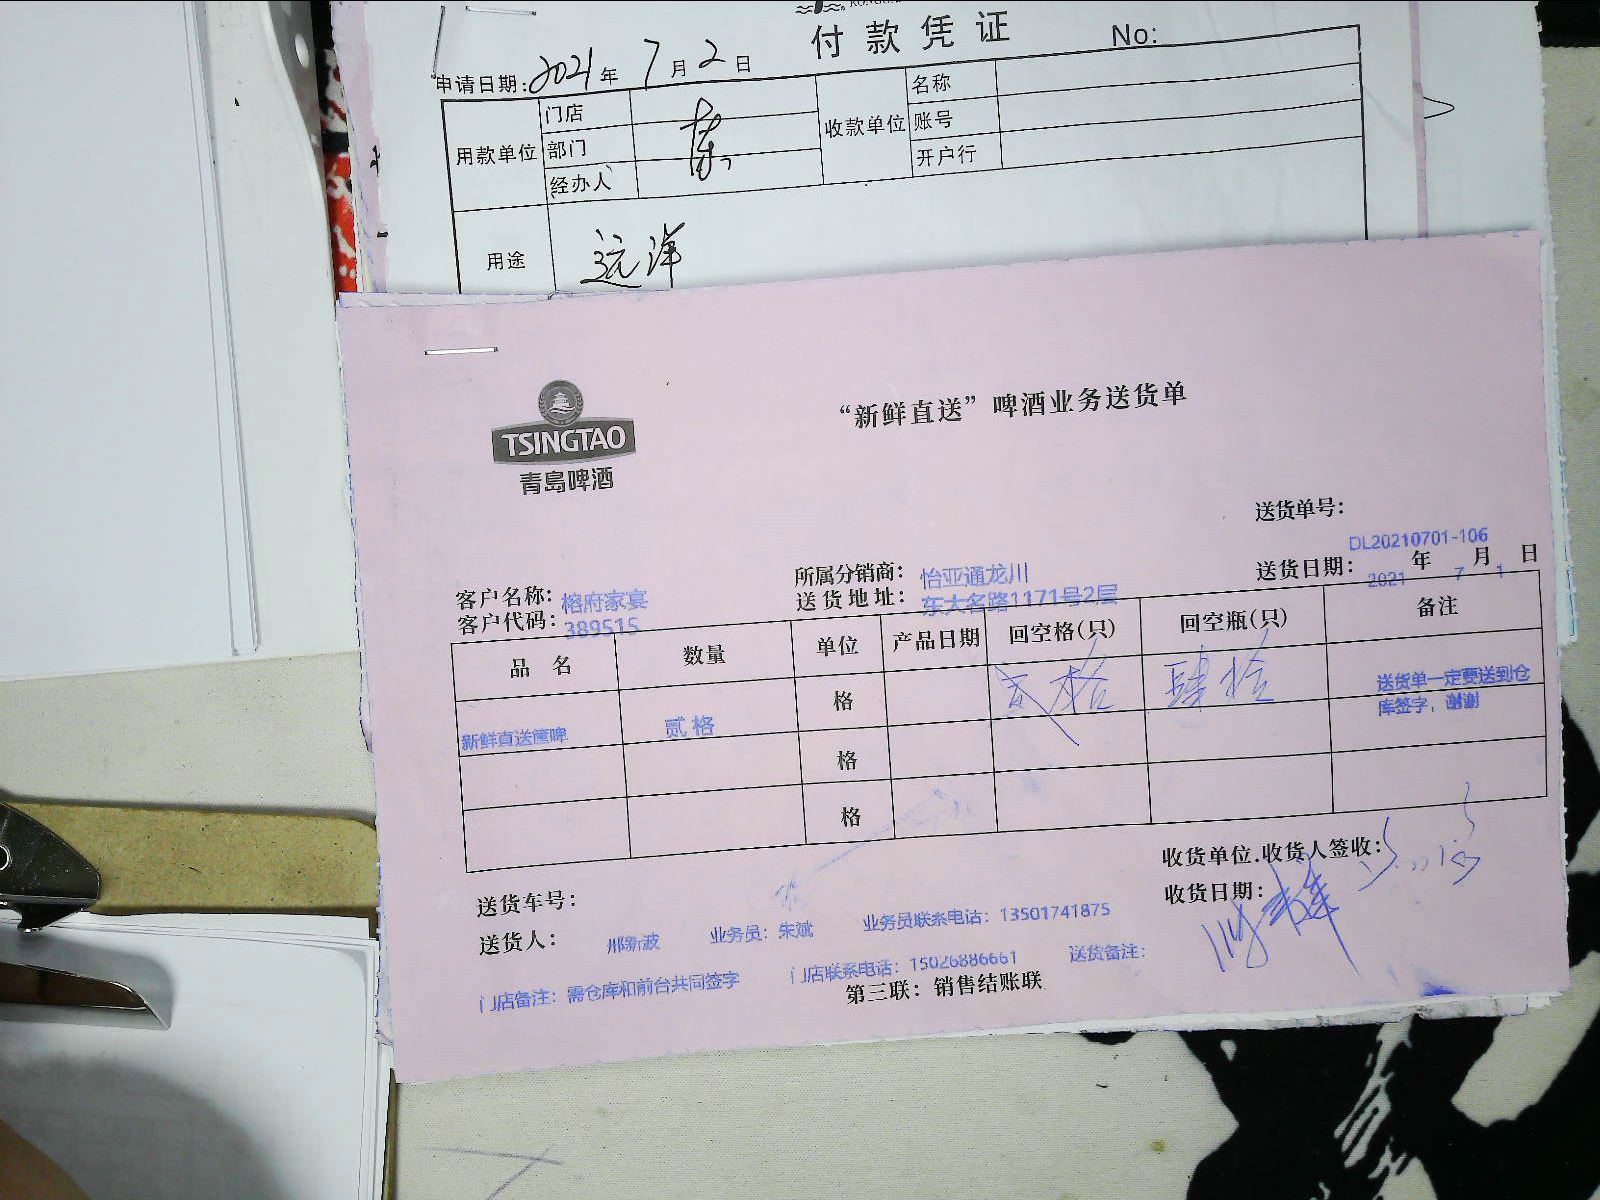 付款凭证
No:
申请日期:2021年7月2日
用款单位
门店
部门
经办人
收款单位
名称
账号
开户行
用途
远洋
TSINGTAO
青岛啤酒
“新鲜直送”啤酒业务送货单
送货单号:
DL20210701-106
客户名称:榕府家宴
所属分销商:怡亚通龙川
送货日期:2021年7月1日
客户代码:389515
送货地址:东大名路1171号2层
品名 数量 单位 产品日期 回空格(只) 回空瓶(只) 备注
新鲜直送筐啤 贰格 格 贰格 肆拾 送货单一定要送到仓
库签字,谢谢
格
格
收货单位.收货人签收:
送货车号:
收货日期:
送货人: 邢新波 业务员:朱斌 业务员联系电话:13501741875
门店备注:需仓库和前台共同签字 门店联系电话:15026886661 送货备注:
第三联:销售结账联